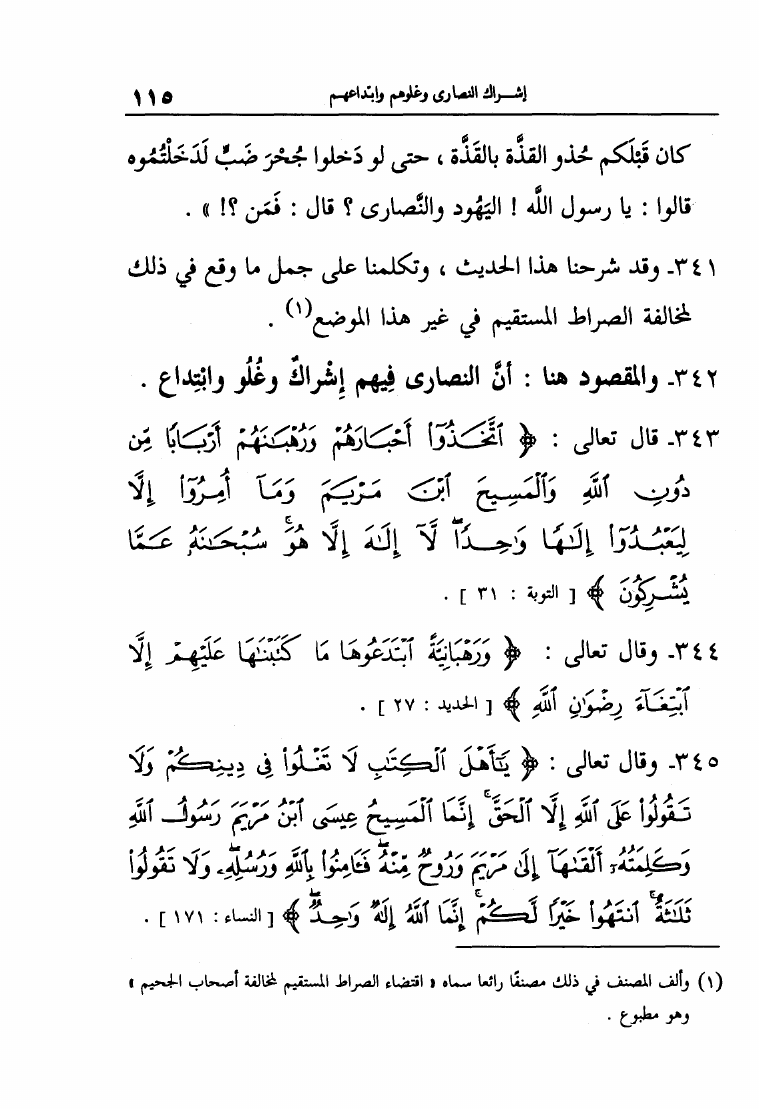 إشـراك النصارى وغلوهم وابتداعهـم ١١٥
كان قَبْلَكم حُذو القذَّة بالقَذَّة ، حتى لو دَخلوا جُحْرَ ضَبٍّ لَدَخَلْتُموه
قالوا : يا رسول اللَّه ! اليَهُود والنَّصارى ؟ قال : فَمَن ؟! » .
٣٤١ـ وقد شرحنا هذا الحديث ، وتكلمنا على جمل ما وقع في ذلك
لمخالفة الصراط المستقيم في غير هذا الموضع(١) .
٣٤٢ـ والمقصود هنا : أنَّ النصارى فِيهم إِشْراكٌ وغُلُو وابْتِداع .
٣٤٣ـ قال تعالى : ﴿ ٱتَّخَذُوٓاْ أَحْبَارَهُمْ وَرُهْبَـٰنَهُمْ أَرْبَابًا مِّن
دُونِ ٱللَّهِ وَٱلْمَسِيحَ ٱبْنَ مَرْيَمَ وَمَآ أُمِرُوٓاْ إِلَّا
لِيَعْبُدُوٓاْ إِلَـٰهًا وَٰحِدًاۖ لَّآ إِلَـٰهَ إِلَّا هُوَۚ سُبْحَـٰنَهُۥ عَمَّا
يُشْرِكُونَ ﴾ [ التوبة : ٣١ ] .
٣٤٤ـ وقال تعالى : ﴿ وَرَهْبَانِيَّةً ٱبْتَدَعُوهَا مَا كَتَبْنَـٰهَا عَلَيْهِمْ إِلَّا
ٱبْتِغَآءَ رِضْوَٰنِ ٱللَّهِ ﴾ [ الحديد : ٢٧ ] .
٣٤٥ـ وقال تعالى : ﴿ يَـٰٓأَهْلَ ٱلْكِتَـٰبِ لَا تَغْلُواْ فِى دِينِكُمْ وَلَا
تَقُولُواْ عَلَى ٱللَّهِ إِلَّا ٱلْحَقَّۚ إِنَّمَا ٱلْمَسِيحُ عِيسَى ٱبْنُ مَرْيَمَ رَسُولُ ٱللَّهِ
وَكَلِمَتُهُۥٓ أَلْقَىٰهَآ إِلَىٰ مَرْيَمَ وَرُوحٌ مِّنْهُۖ فَـَٔامِنُواْ بِٱللَّهِ وَرُسُلِهِۦۖ وَلَا تَقُولُواْ
ثَلَـٰثَةٌۚ ٱنتَهُواْ خَيْرًا لَّكُمْۚ إِنَّمَا ٱللَّهُ إِلَـٰهٌ وَٰحِدٌۖ ﴾ [ النساء : ١٧١ ] .
(١) وألف المصنف في ذلك مصنفًا رائعا سماه « اقتضاء الصراط المستقيم لمخالفة أصحاب الجحيم »
وهو مطبوع .